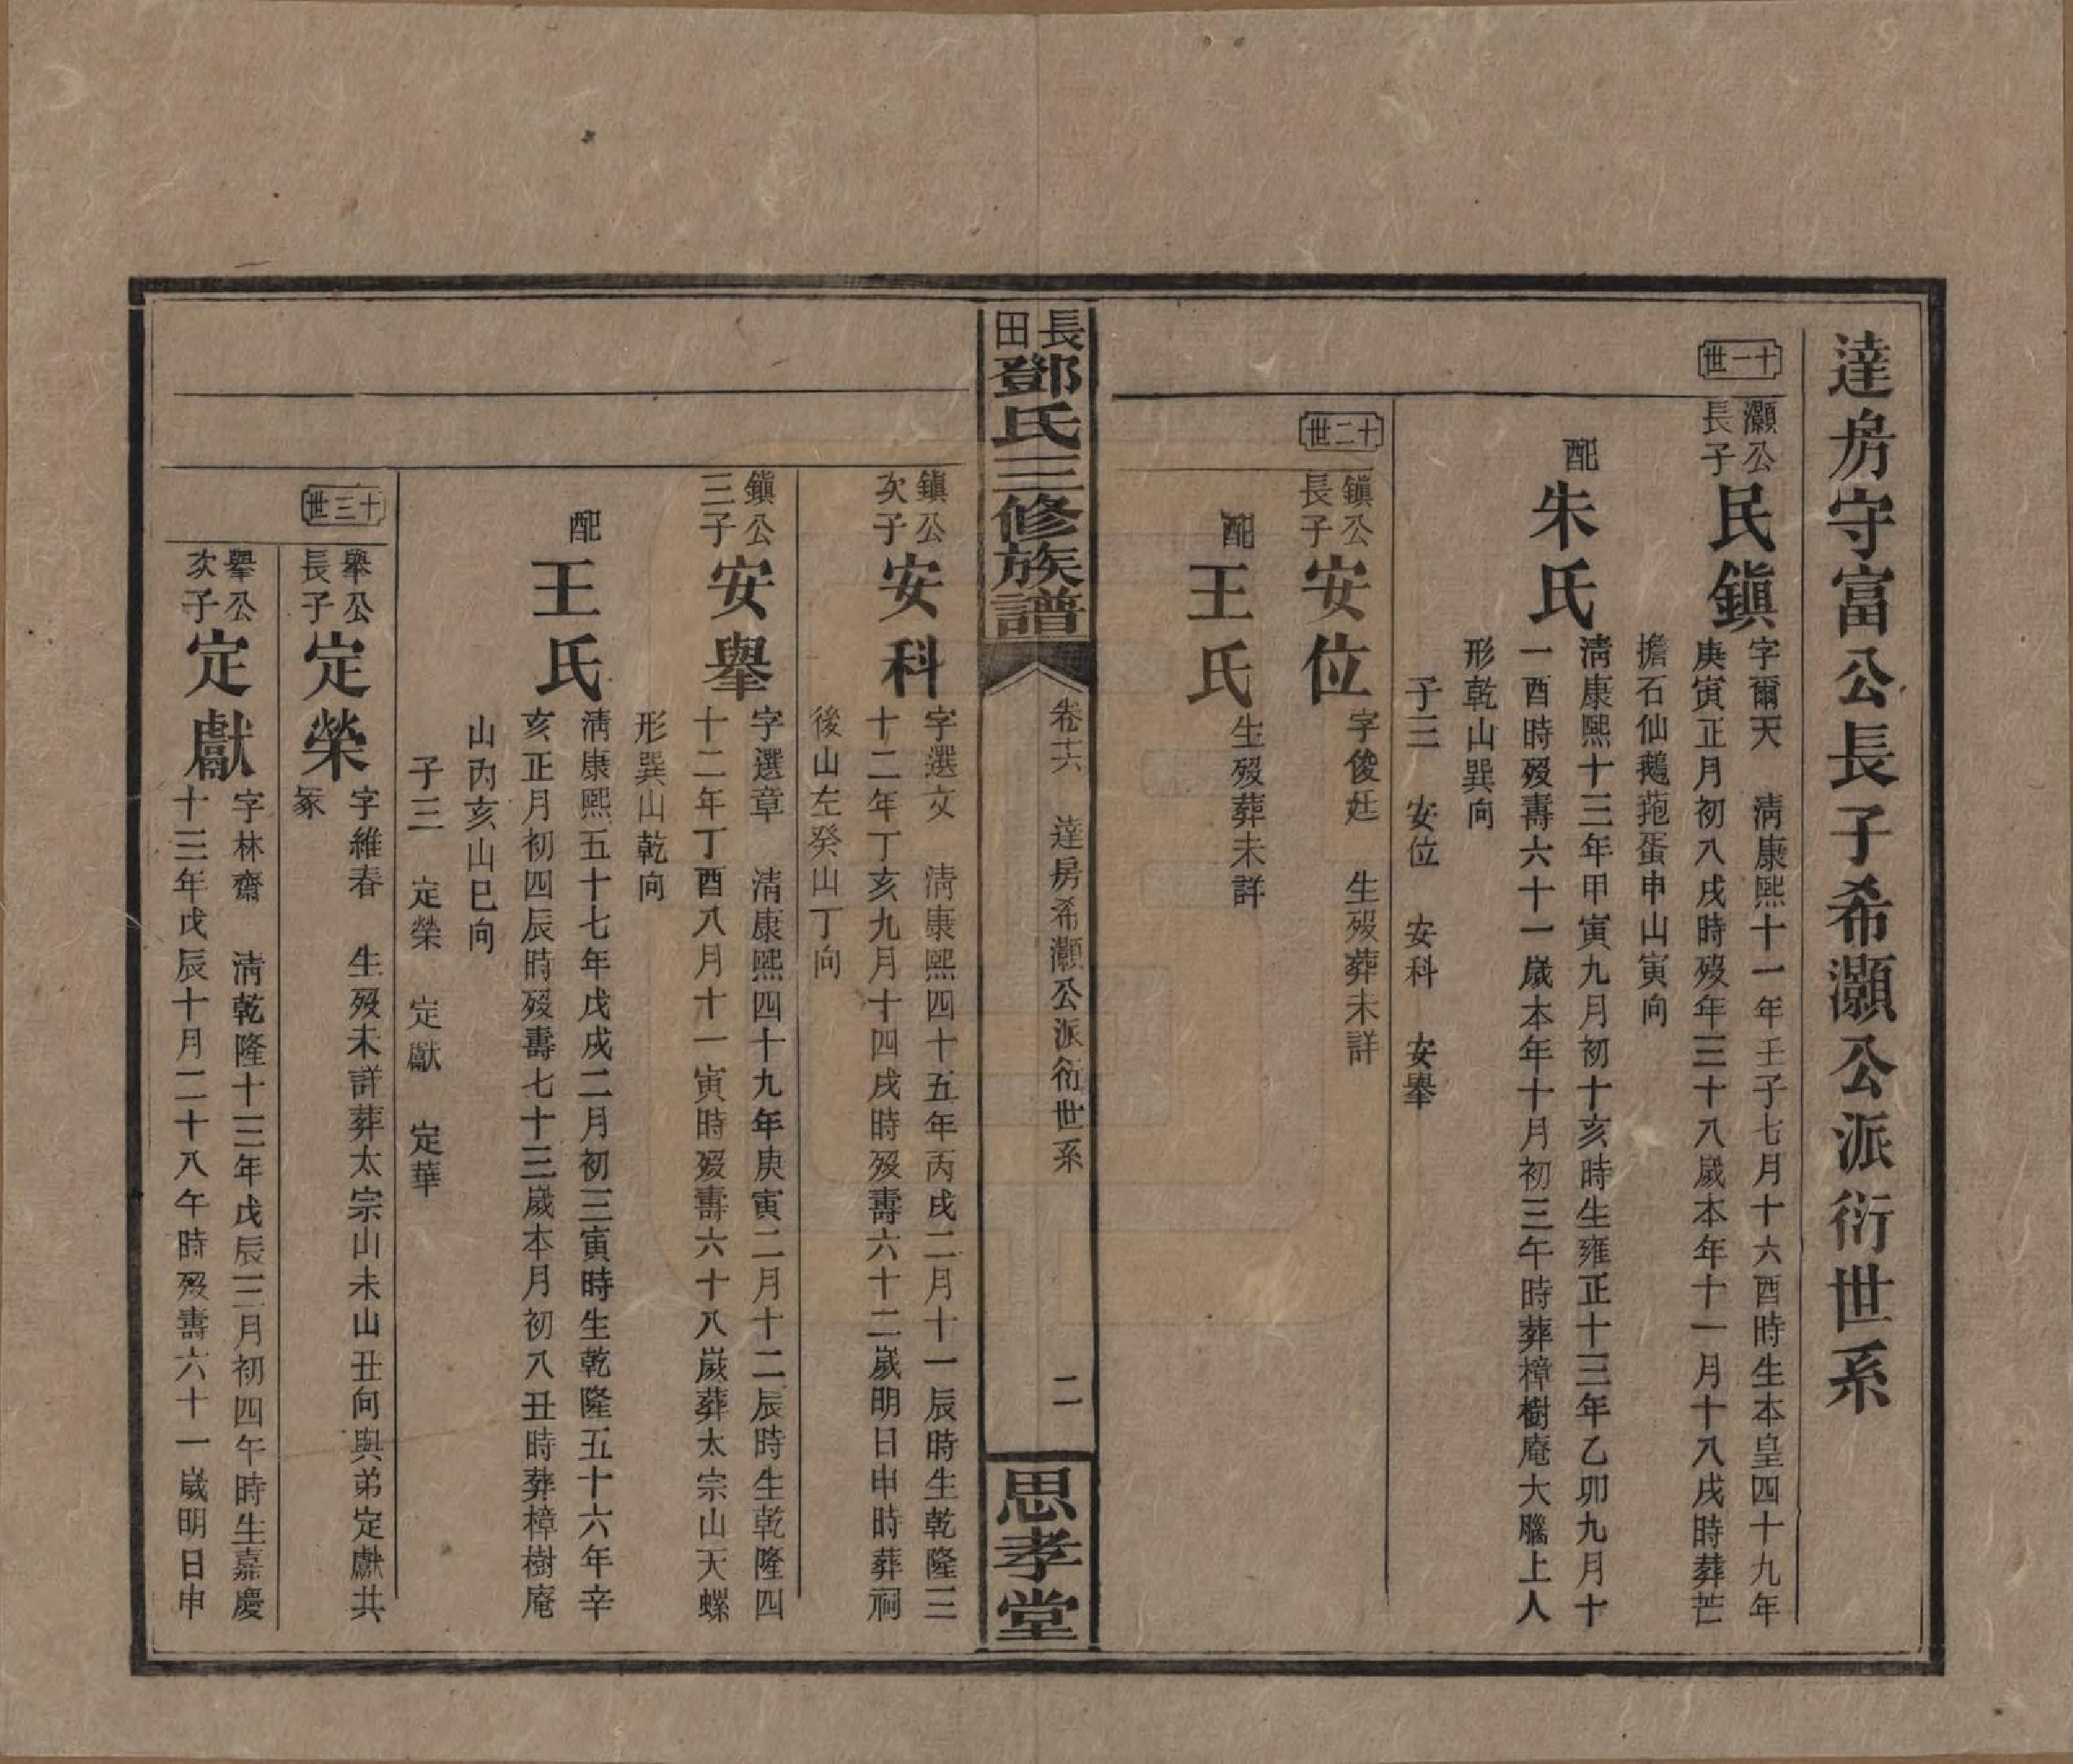 達房守富公長子希灝公派衍世系
十一世
灝公長子
民鎭
字爾天　淸康熙十一年壬子七月十六酉時生本皇四十九年
庚寅正月初八戌時歿年三十八歲本年十一月十八戌時葬芒
擔石仙鵝菢蛋申山寅向
配
朱氏
淸康熙十三年甲寅九月初十亥時生雍正十三年乙卯九月十
一酉時歿壽六十一歲本年十月初三午時葬樟樹庵大腦上人
形乾山巽向
子三　安位　安科　安舉
十二世
鎭公長子
安位
字俊廷　生歿葬未詳
配
王氏
生歿葬未詳
長田鄧氏三修族譜
卷十六　達房希灝公派衍世系
二
思孝堂
鎭公次子
安科
字選文　淸康熙四十五年丙戌二月十一辰時生乾隆三
十二年丁亥九月十四戌時歿壽六十二歲明日申時葬祠
後山左癸山丁向
鎭公三子
安舉
字選章　淸康熙四十九年庚寅二月十二辰時生乾隆四
十二年丁酉八月十一寅時歿壽六十八歲葬太宗山天螺
形巽山乾向
配
王氏
淸康熙五十七年戊戌二月初三寅時生乾隆五十六年辛
亥正月初四辰時歿壽七十三歲本月初八丑時葬樟樹庵
山內亥山巳向
子三　定榮　定獻　定華
十三世
舉公長子
定榮
字維春　生歿未詳葬太宗山未山丑向與弟定獻共
冢
舉公次子
定獻
字林齋　淸乾隆十三年戊辰三月初四午時生嘉慶
十三年戊辰十月二十八午時歿壽六十一歲明日申